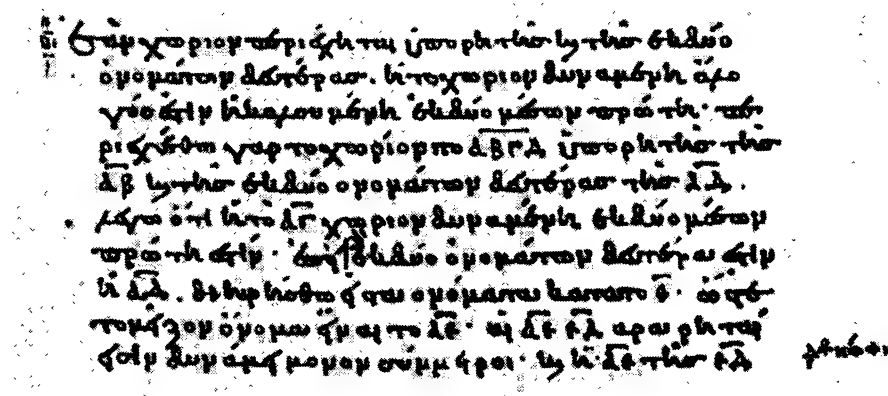 Ἐὰν χωρίον περιέχηται ὑπὸ ῥητῆς κ τῆς ἐκ δύο
ὀνομάτων δευτέρας. ἡ τὸ χωρίον δυναμένη ἄλο
γός ἐστιν ἡ καλουμένη ἐκ δύο μέσων πρώτη· πε
ριεχέσθω γὰρ τὸ χωρίον τὸ ΑΒΓΔ ὑπὸ ῥητῆς τῆς
ΑΒ κ τῆς ἐκ δύο ὀνομάτων δευτέρας τῆς ΑΔ.
λέγω ὅτι ἡ τὸ ΑΓ χωρίον δυναμένη ἐκ δύο μέσων
πρώτη ἐστίν· ἐπεὶ ἐκ δύο ὀνομάτων δευτέρα ἐστὶν
ἡ ΑΔ. διηρήσθω εἰς τὰ ὀνόματα κατὰ τὸ Ε· ὥστε
τὸ μεῖζον ὄνομα εἶναι τὸ ΑΕ· αἱ ΑΕ ΕΔ ἄρα ῥηταί
εἰσιν δυνάμει μόνον σύμμετροι· κ ἡ ΑΕ τῆς ΕΔ